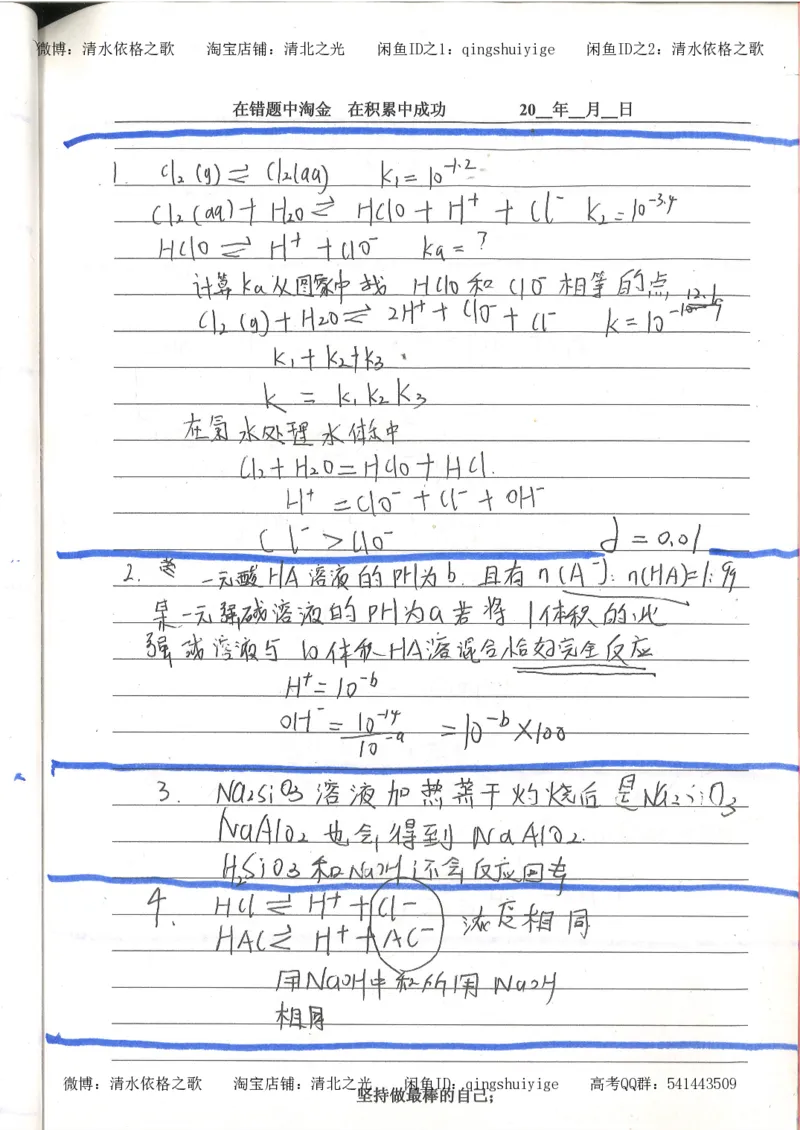 微博：清水依格之歌 淘宝店铺：清北之光 闲鱼ID之1：qingshuiyige 闲鱼ID之2：清水依格之歌
在错题中淘金 在积累中成功 20__年__月__日
1. Cl₂(g) ⇌ Cl₂(aq) K₁=10^-1.2
Cl₂(aq)+H₂O ⇌ HClO + H⁺ + Cl⁻ K₂=10^-3.4
HClO ⇌ H⁺ + ClO⁻ Ka=?
计算Ka从图象中找 HClO和ClO⁻相等的点
Cl₂(g)+H₂O ⇌ 2H⁺ + ClO⁻ + Cl⁻ K=10
K₁+K₂+K₃
K = K₁K₂K₃
在氯水处理水体系中
Cl₂+H₂O=HClO+HCl.
H⁺ =ClO⁻+Cl⁻+OH⁻
Cl⁻>ClO⁻ d=0.01
2. 一元酸HA溶液的PH为b.且有n(A⁻):n(HA)=1:99
某一元强碱溶液的PH为a若将1体积的此
强碱溶液与10体积HA溶混合恰好完全反应
H⁺=10^-b
OH⁻=10^-14/10^-a =10^-b×100
3. Na₂SiO₃溶液加热蒸干灼烧后是Na₂SiO₃
NaAlO₂也会得到NaAlO₂.
H₂SiO₃和NaOH还会反应回去
4. HCl ⇌ H⁺+Cl⁻ 浓度相同
HAC ⇌ H⁺+AC⁻
用NaOH中和所用NaOH
相同
微博：清水依格之歌 淘宝店铺：清北之光 闲鱼ID：qingshuiyige 高考QQ群：541443509
坚持做最棒的自己；